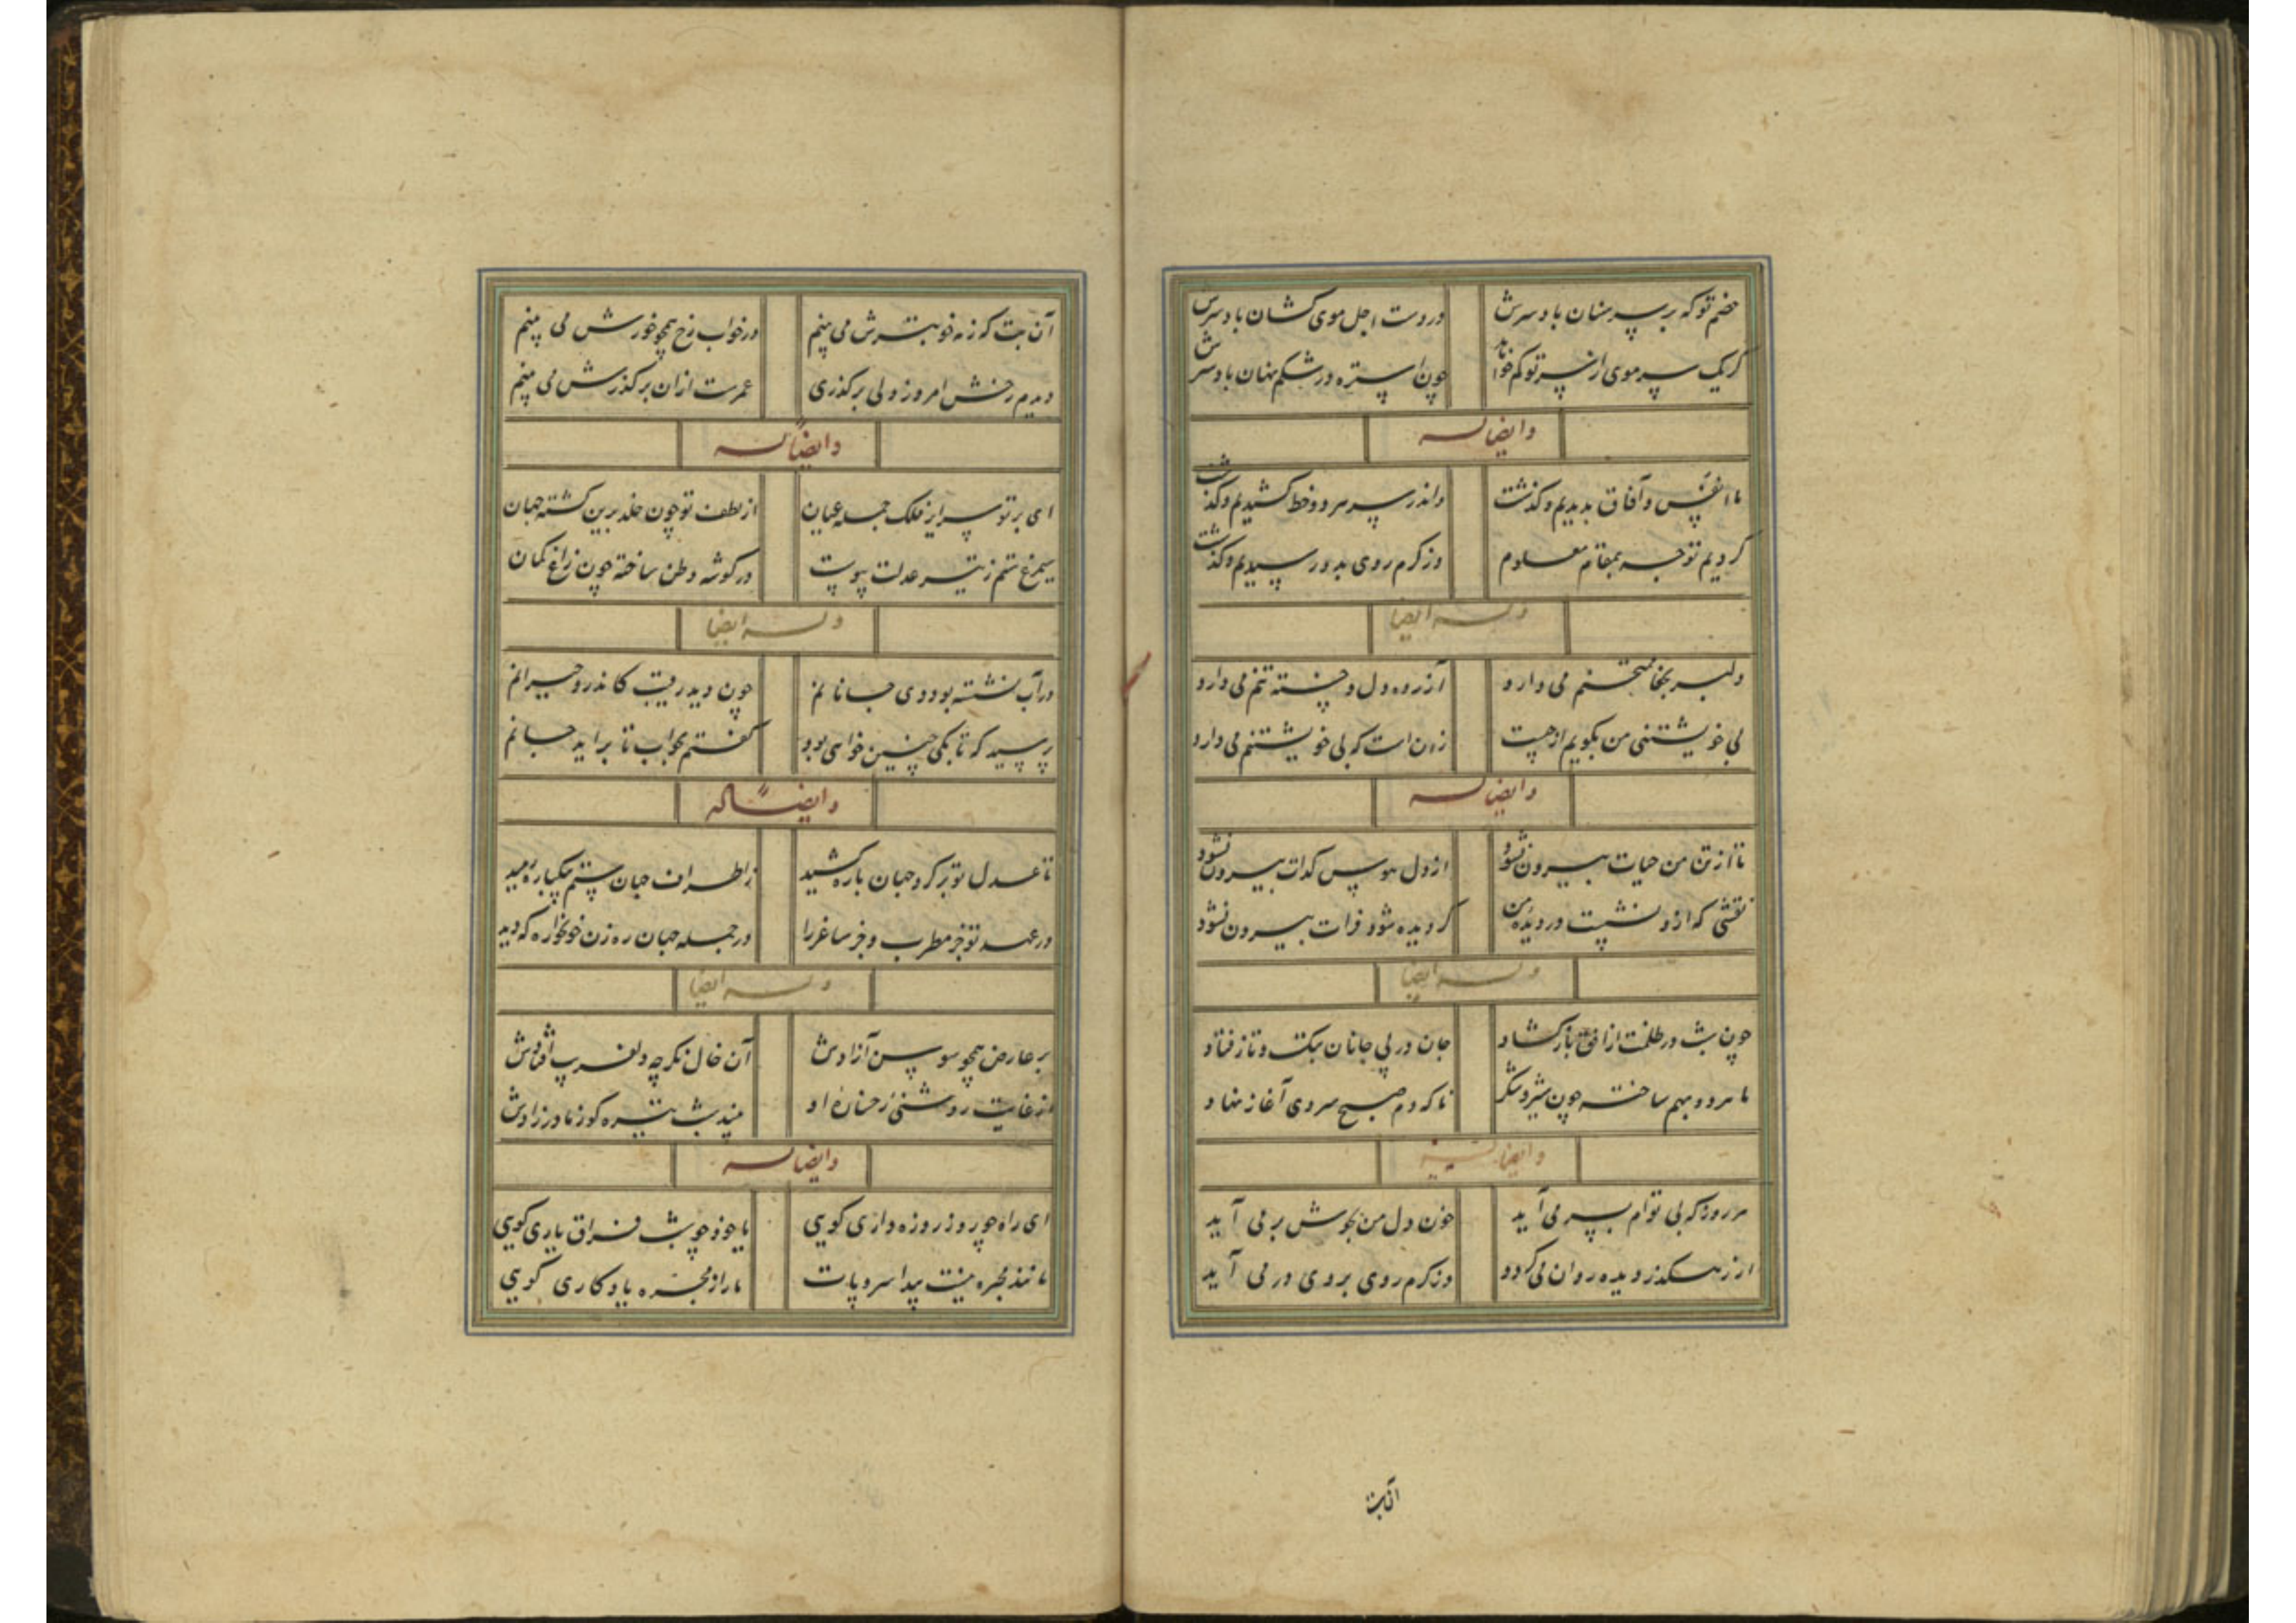 خصم تو که بر سر سنان باد سرش
در دست اجل موی کشان باد سرش
گر یک سر موی از سر تو کم خواهد
چون استره در شکم نهان باد سرش
وایضا له
ما انفس و آفاق بدیدیم و گذشت
واندر سر هر دو خط کشیدیم و گذشت
کردیم توجه بمقام معلوم
وز کرم روی بدو رسیدیم و گذشت
وله ایضا
دلبر بجفا ممتحنم می دارد
آزرده دل و خسته تنم می دارد
بی خویشتنی من بگویم از چیست
زان است که بی خویشتنم می دارد
وایضا له
تا از تن من حیات بیرون نشود
از دل هوس کدات بیرون نشود
نقشی که ازو نشست در دیده من
گر دیده شود فرات بیرون نشود
وله ایضا
چون شب در ظلمت از افق باز گشاد
جان در پی جانان بتک و تاز فتاد
ما هر دو بهم ساخته چون شیر و شکر
ناگه دم صبح سردی آغاز نهاد
وایضا له
هر روز که بی توام بسر می آید
خون دل من بجوش بر می آید
از رهگذر دیده روان می گردد
وز کرم روی بروی در می آید
آن بت
آن بت که ز مه خوبترش می بینم
در خواب رخ همچو خورش می بینم
دیدم رخش امروز ولی بر گذری
عمرست ازان بر گذرش می بینم
وایضا له
ای بر تو سرایر فلک جمله عیان
از لطف تو چون خلد برین گشته جهان
سیمرغ ستم ز تیر عدلت پیوست
در گوشه وطن ساخته چون زاغ کمان
وله ایضا
در آب نشسته بود دی جانانم
چون دید رقیب کاندرو حیرانم
پرسید که تا بکی چنین خواهی بود
گفتم بجواب تا بر آید جانم
وایضا له
تا عدل تو بر گرد جهان باره کشید
ز اطراف جهان ستم بیکباره رمید
در عهد تو جز مطرب و جز ساغر را
در جمله جهان ره زن و خونخواره که دید
وله ایضا
بر عارض همچو سوسن آزادش
آن خال نگر چه دلفریب افتادش
از غایت روشنی رخساره او
بیند شب تیره کور مادرزادش
وایضا له
ای راه چو روز روزه داری گویی
یا خود چو شب فراق یاری گویی
مانند مجره نیست پیدا سر و پات
ما را ز مجره یادگاری گویی